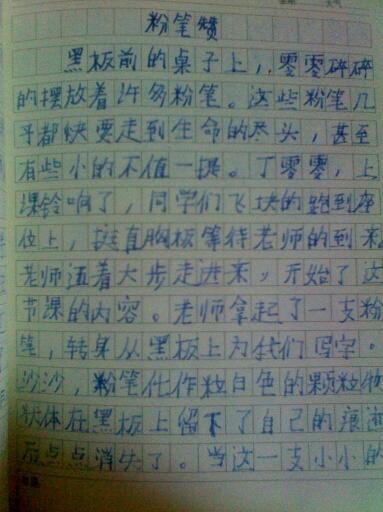 粉笔赞
黑板前的桌子上，零零碎碎
的摆放着许多粉笔。这些粉笔几
乎都快要走到生命的尽头，甚至
有些小的不值一提。丁零零，上
课铃响了，同学们飞块的跑到座
位上，挺直胸板等待老师的到来
老师迈着大步走进来，开始了这
节课的内容。老师拿起了一支粉
笔，转身从黑板上为我们写字。
沙沙，粉笔化作粒白色的颗粒物
状体在黑板上留下了自己的痕迹
后点点消失了。当这一支小小的